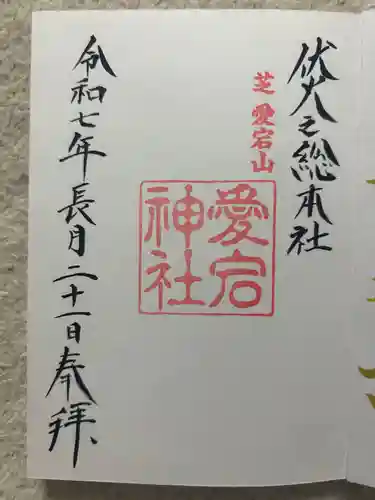 伏火之総本社
芝愛宕山
愛宕
神社
令和七年長月二十一日奉拝